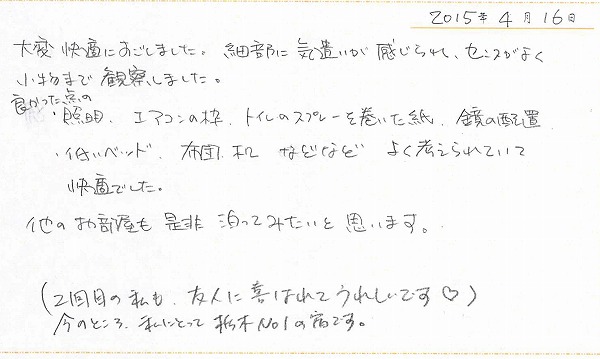 2015年4月16日
大変快適にすごしました。細部に気遣いが感じられ、センスがよく
小物まで観察しました。
良かった点の
・照明、エアコンの枠、トイレのスプレーを巻いた紙、鏡の配置
・低いベッド、布団、和 などなど よく考えられていて
快適でした。
他のお部屋も是非泊ってみたいと思います。
(2回目の私も、友人に喜ばれてうれしいです♡)
今のところ、私にとって栃木No1の宿です。